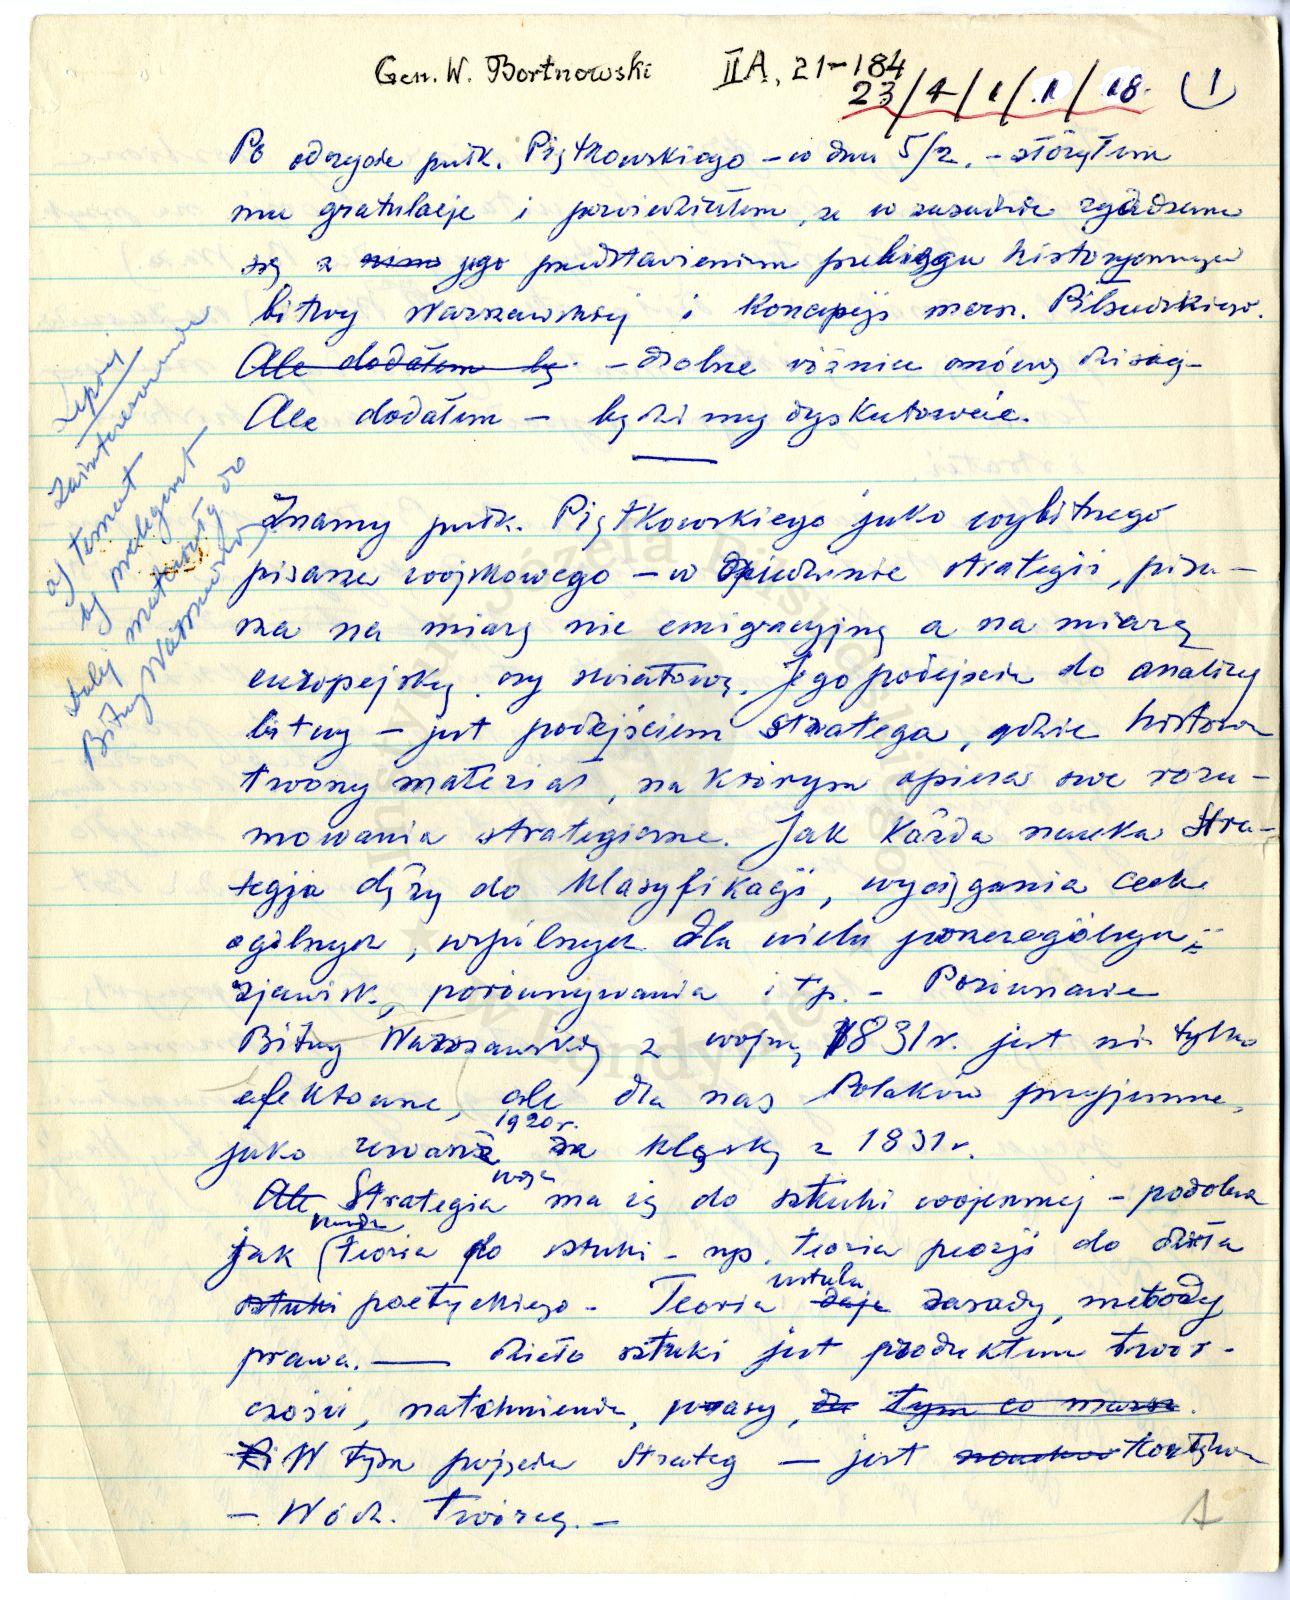 Gen. W. Bortnowski IIA, 21-184
23/4/1/1/18. 1
Po odczycie pułk. Piątkowskiego - w dniu 5/2. - złożyłem
mu gratulacje i powiedziałem, że w zasadzie zgadzam
się z nim jego przedstawieniem przebiegu historycznego
bitwy Warszawskiej i koncepcji marsz. Piłsudskiego.
Ale dodałem bę - drobne różnice omówię dzisiaj -
Ale dodałem - będziemy dyskutować.
Znamy pułk. Piątkowskiego jako wybitnego
pisarza wojskowego - w dziedzinie strategii, pisa-
rza na miarę nie emigracyjną a na miarę
europejską czy światową. Jego podejście do analizy
bitwy - jest podejściem stratega, gdzie historia
tworzy materiał, na którym opiera swe rozu-
mowania strategiczne. Jak każda nauka stra-
tegja dąży do klasyfikacji, wyciągania cech
ogólnych, wspólnych dla wielu poszczególnych
zjawisk, porównywania i tp. - Porównanie
Bitwy Warszawskiej z wojną 1831 r. jest nie tylko
efektowne, ale dla nas Polaków przyjemne,
1920 r.
jako rewanż za klęskę z 1831 r.
Ale Strategia ma się do sztuki wojennej - podobnie
jak teoria do sztuki - np. teoria poezji do dzieła
ustala
sztuki poetyckiego - Teoria daje zasady, metody
prawa. — Dzieło sztuki jest produktem twór-
czości, natchnienia, pracy, tym co
W tym pojęciu Strateg - jest
- Wódz. Twórcą. -
1
Lepiej
zainteresowanie
temat
by prelegent
dalej
Bitwy Warszawskiej
Instytut Józefa Piłsudskiego
w Londynie